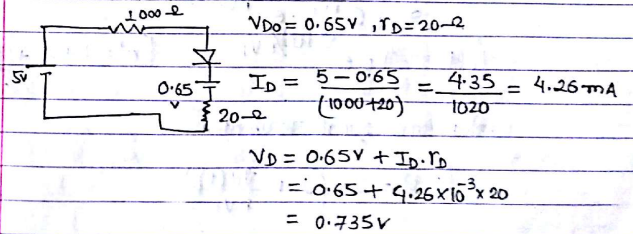 1000 Ω
V_D0 = 0.65V , r_D = 20Ω
5V
0.65 V
20Ω
I_D = (5 - 0.65) / (1000+20) = 4.35 / 1020 = 4.26 mA
V_D = 0.65V + I_D . r_D
= 0.65 + 4.26×10⁻³ × 20
= 0.735V